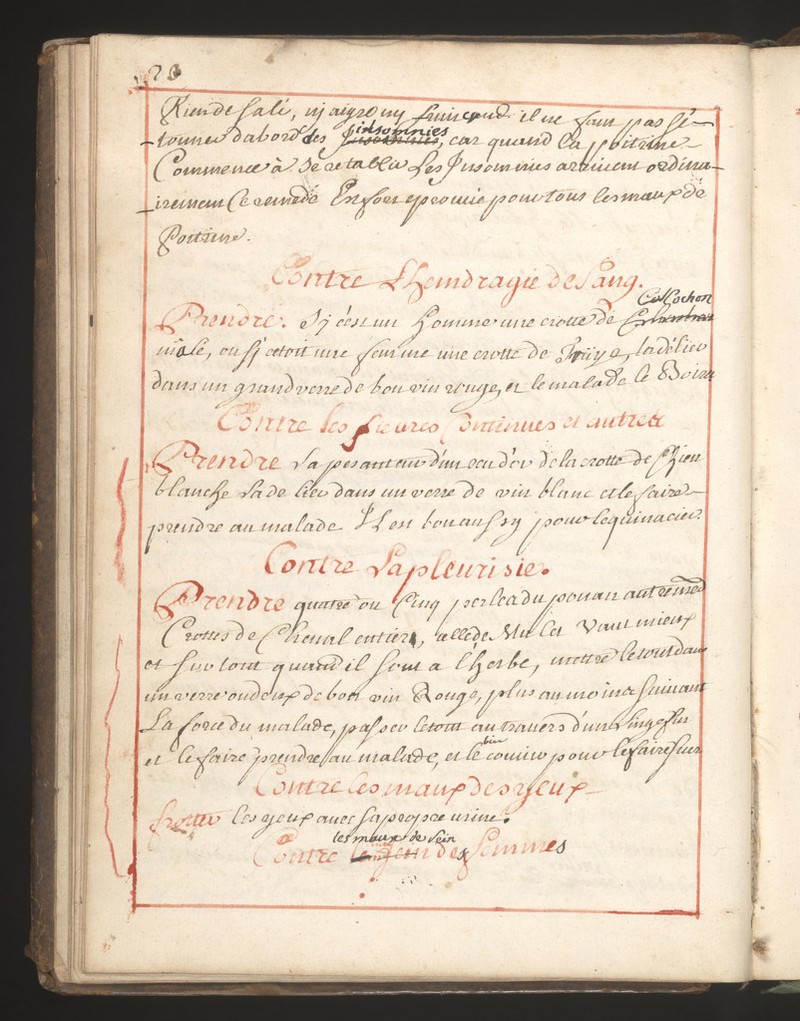 28
Rien de salé, ny aigre ny fruit crud. il ne faut pas s'é-
tonner d'abord des insomnies, car quand la poitrine
Commence à se retablir Les Insomnies arrivent ordina-
irement Ce remede Est fort eprouvé pour tous les maux de
Poitrine.
Contre L'hemoragie de Sang.
Prendre. Sy c'est un homme une crotte de Cochon
mâle, ou sy c'etoit une femme une crotte de Truÿe, la délier
dans un grand verre de bon vin rouge, et le malade le Boira
Contre les fievres Continues et autres
Prendre La pesanteur d'un ecu d'or de la crotte de Chien
blanche La delier dans un verre de vin blanc et le faire
prendre au malade Il est bon aussy pour lequinacier.
Contre La pleurisie.
Prendre quatre ou Cinq perles du ponan autrement
Crottes de Cheval entier, celle de Mulet vaut mieux
et sur tout quand il sont a l'herbe, mettre le tout dans
un verre ou deux de bon vin Rouge, plus au moins suivant
La force du malade, passer le tout au travers d'un Linge fin
et le faire prendre au malade, et le bien couvrir pour le faire suer
Contre les maux des yeux
frotter les yeux avec sa propre urine.
Contre les maux de sein des femmes